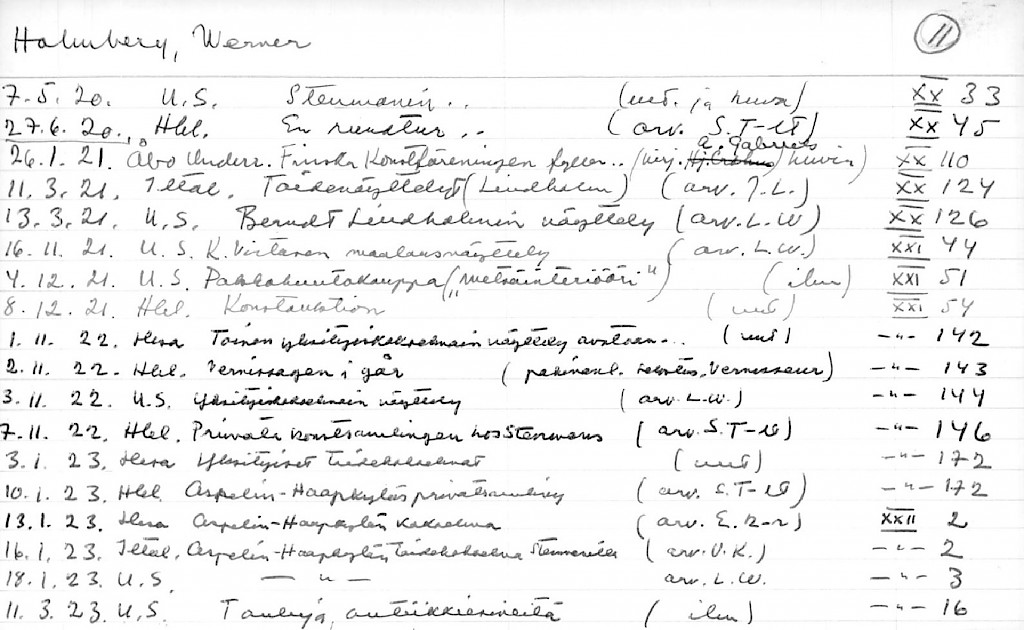 Holmberg, Werner 11
7.5.20. U.S. Stenmanin.. (uut. ja kuva) XX 33
27.6.20., Hbl. En rundtur.. (arv. S.T-ll) XX 45
a. Gabriels
26.1.21. Åbo Underr. Finska Konstföreningen fyller.. (kirj. kuvia) XX 110
11.3.21. Iltal. Taidenäyttelyt (Lindholm) (arv. J.L.) XX 124
13.3.21. U.S. Berndt Lindholmin näyttely (arv. L.W) XX 126
16.11.21. U.S. K. Virtasen maalausnäyttely (arv. L.W.) XXI 44
4.12.21. U.S. Pakkohuutokauppa ("metsäinteriööri") (ilm) XXI 51
8.12.21. Hbl. Konstauktion (uut) XXI 54
1.11.22. Hsra Toinen yksityiskokoelmain näyttely avataan... (uut) -"- 142
2.11.22. Hbl. Vernissagen i går (pakinank. selostus, Vernisseur) -"- 143
3.11.22. U.S. Yksityiskokoelmain näyttely (arv. L.W.) -"- 144
7.11.22. Hbl. Privata konstsamlingen hos Stenmans (arv. S.T-ll) -"- 146
3.1.23. Hsra Yksityiset taidekokoelmat (uut) -"- 172
10.1.23. Hbl. Aspelin-Haapkyläs privatsamling (arv. S.T-ll) -"- 172
13.1.23. Hsra Aspelin-Haapkylän kokoelma (arv. E.R-r) XXII 2
16.1.23. Iltal. Aspelin-Haapkylän taidekokoelma Stenmanilla (arv. V.K.) -"- 2
18.1.23. U.S. -"- arv. L.W. -"- 3
11.3.23. U.S. Tauluja, antiikkiesineitä (ilm) -"- 16